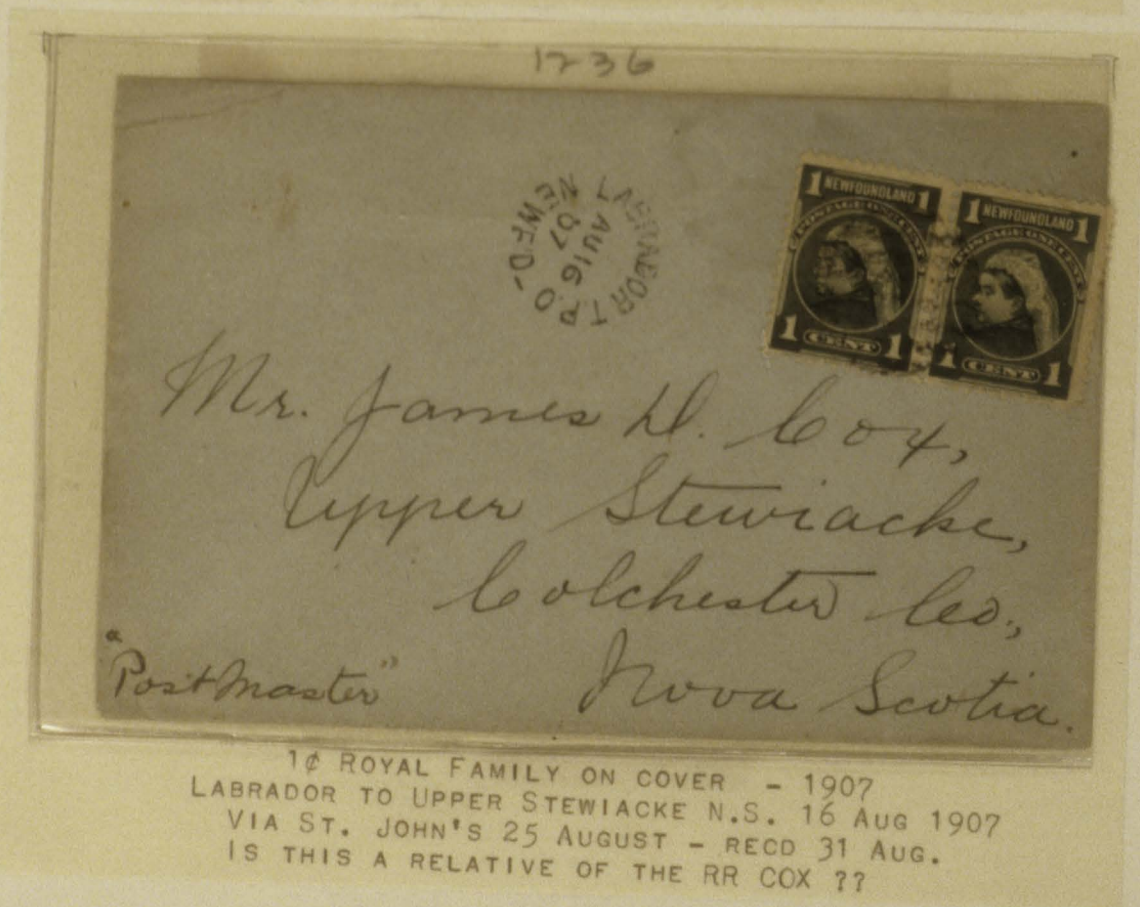 1236
LABRADOR T.P.O.
AU 16
07
NEWF'D-
1 NEWFOUNDLAND 1
POSTAGE ONE CENT
1 CENT 1
1 NEWFOUNDLAND 1
POSTAGE ONE CENT
1 CENT 1
Mr. James D. Cox,
Upper Stewiacke,
Colchester Co.,
Nova Scotia.
"Postmaster"
1¢ ROYAL FAMILY ON COVER - 1907
LABRADOR TO UPPER STEWIACKE N.S. 16 AUG 1907
VIA ST. JOHN'S 25 AUGUST - RECD 31 AUG.
IS THIS A RELATIVE OF THE RR COX ??